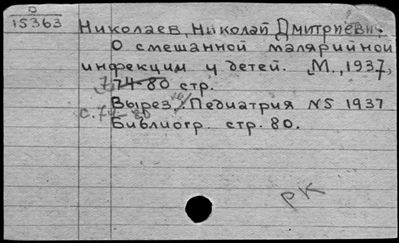 О
15363
Николаев, Николай Дмитриевич.
О смешанной малярийной
инфекции у детей. М., 1937,
74-80 стр.
Вырез. Педиатрия N5 1937
с. 74-80
Библиогр. стр. 80.
РК